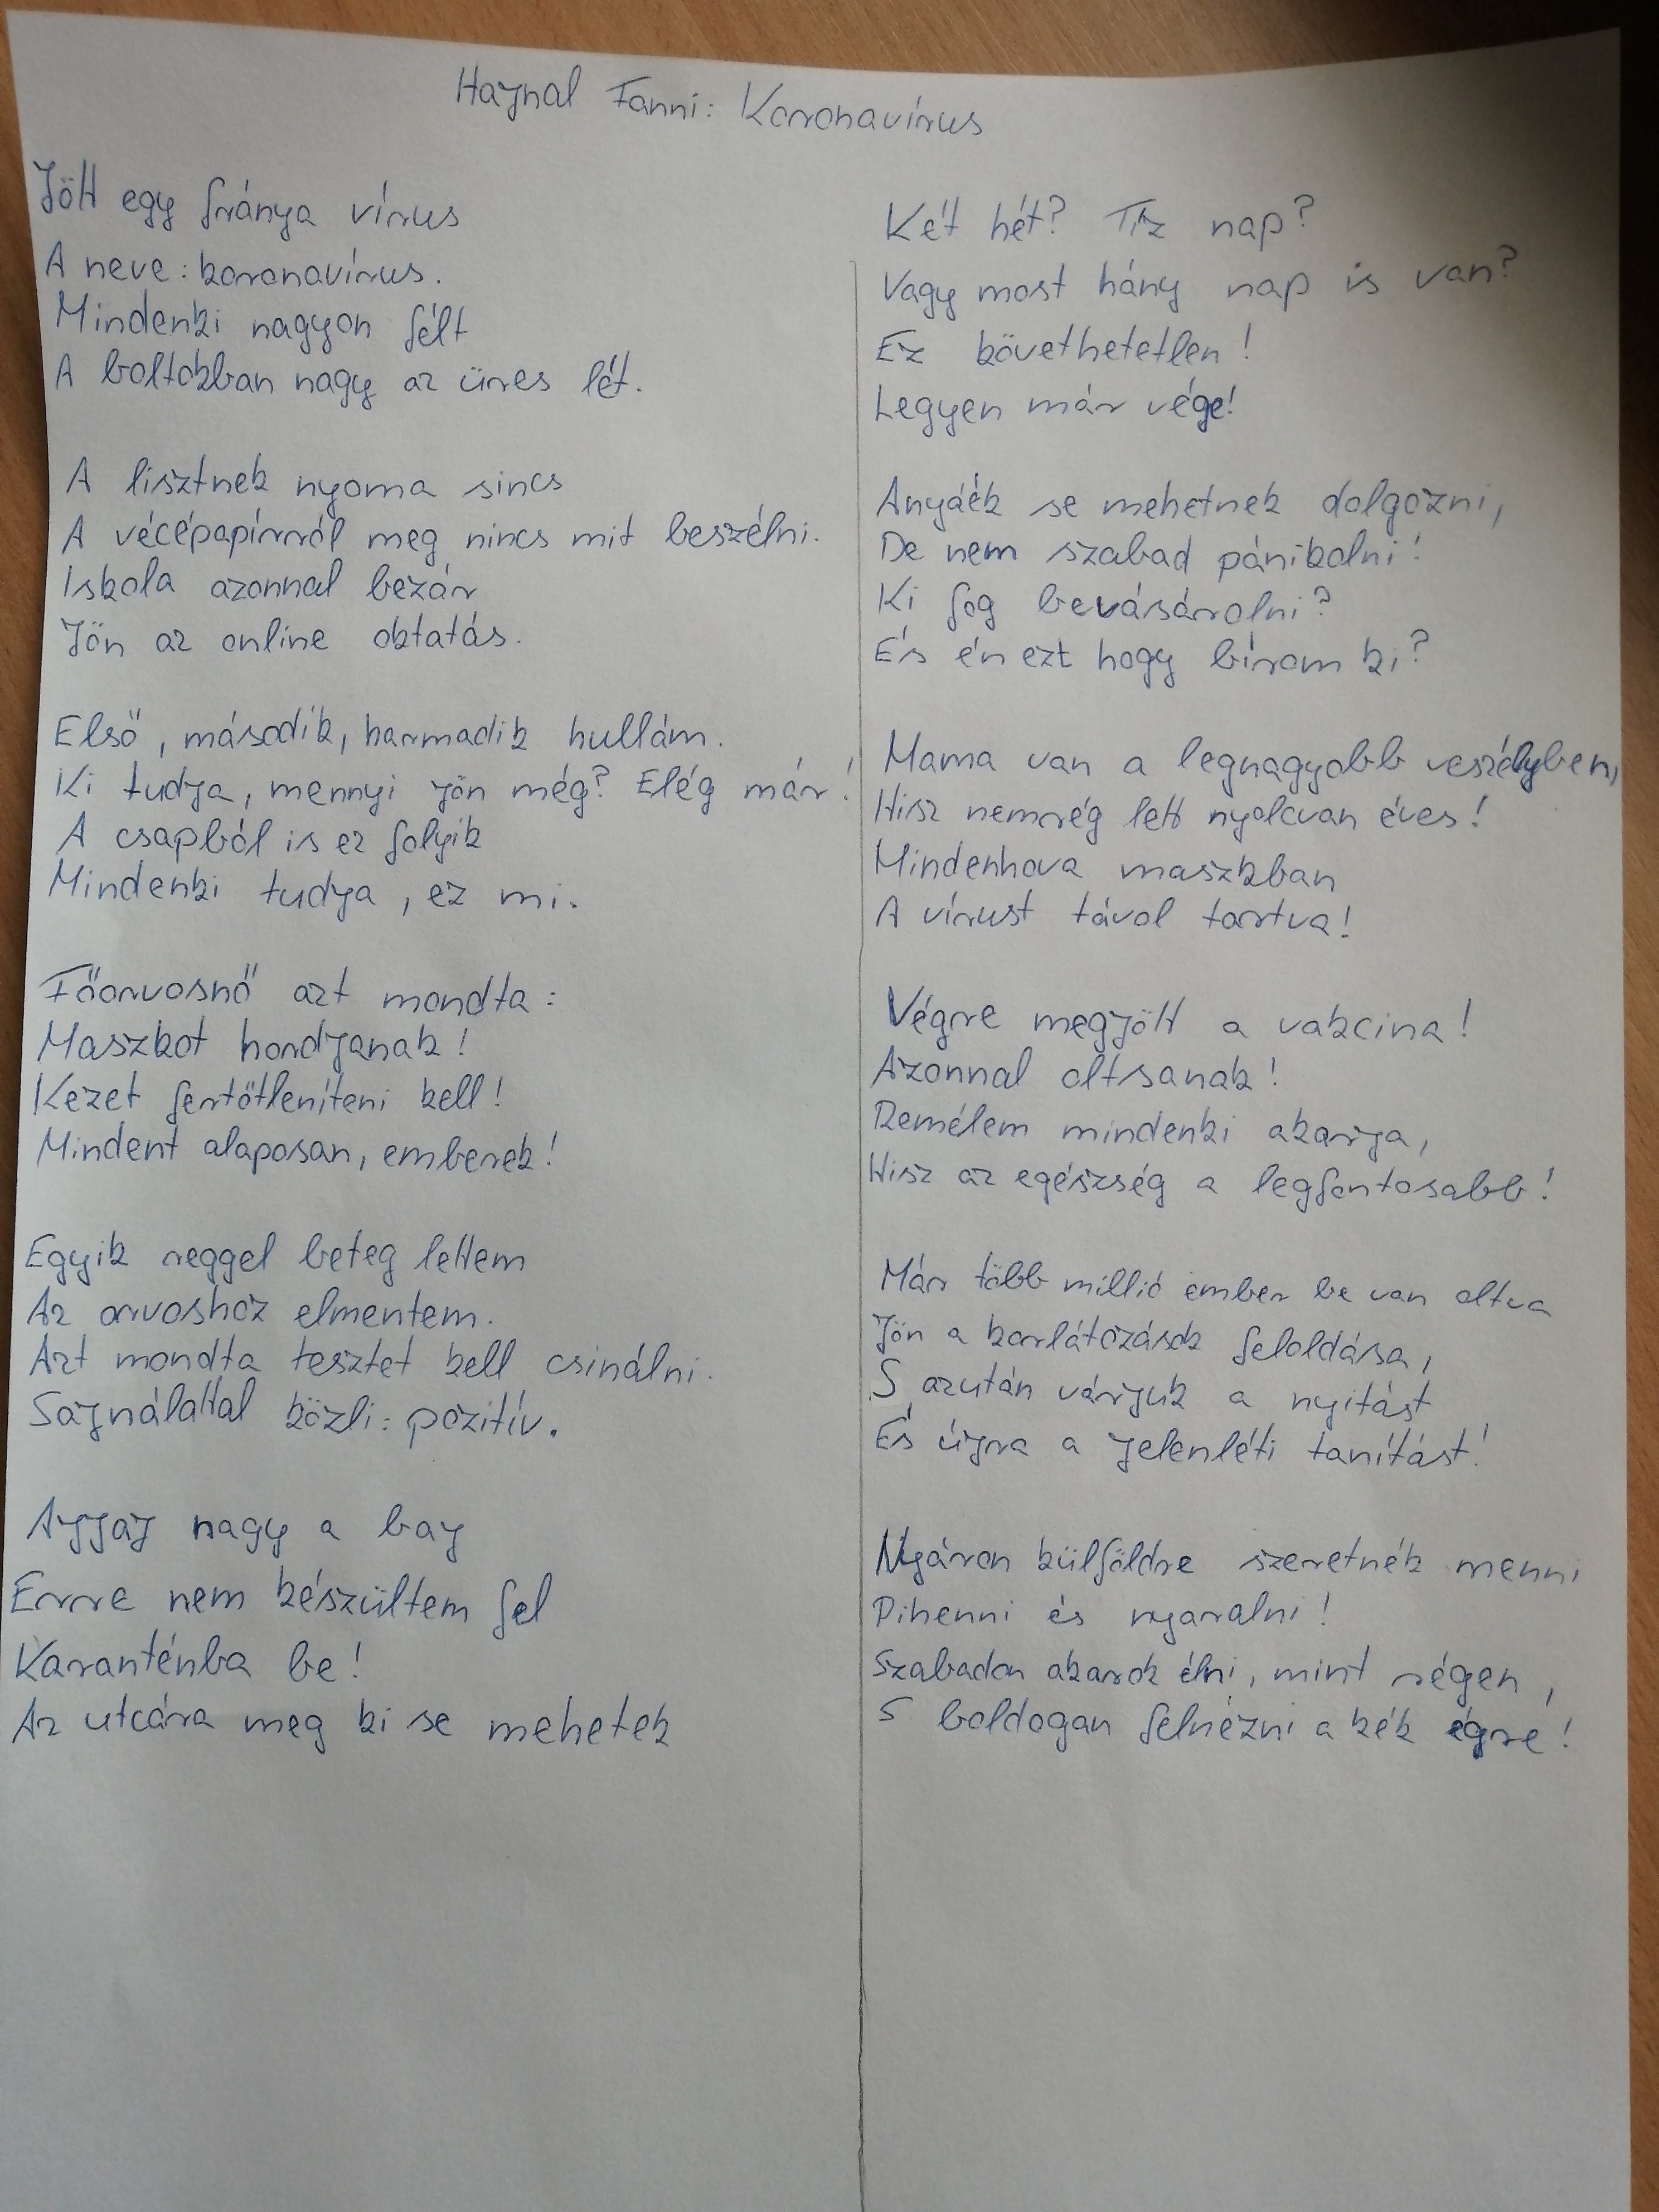 Hajnal Fanni: Koronavírus
Jött egy fránya vírus
A neve: koronavírus.
Mindenki nagyon félt
A boltokban nagy az üres lét.
A lisztnek nyoma sincs
A vécépapírról meg nincs mit beszélni.
Iskola azonnal bezár
Jön az online oktatás.
Első, második, harmadik hullám.
Ki tudja, mennyi jön még? Elég már!
A csapból is ez folyik
Mindenki tudja, ez mi.
Főorvosnő azt mondta:
Maszkot hordjanak!
Kezet fertőtleníteni kell!
Mindent alaposan, emberek!
Egyik reggel beteg lettem
Az orvoshoz elmentem.
Azt mondta tesztet kell csinálni.
Sajnálattal közli: pozitív.
Ajjaj nagy a baj
Erre nem készültem fel
Karanténba be!
Az utcára meg ki se mehetek
Két hét? Tíz nap?
Vagy most hány nap is van?
Ez követhetetlen!
Legyen már vége!
Anyáék se mehetnek dolgozni,
De nem szabad pánikolni!
Ki fog bevásárolni?
És én ezt hogy bírom ki?
Mama van a legnagyobb veszélyben,
Hisz nemrég lett nyolcvan éves!
Mindenhova maszkban
A vírust távol tartva!
Végre megjött a vakcina!
Azonnal oltsanak!
Remélem mindenki akarja,
Hisz az egészség a legfontosabb!
Már több millió ember be van oltva
Jön a korlátozások feloldása,
S azután várjuk a nyitást
És újra a jelenléti tanítást!
Nyáron külföldre szeretnék menni
Pihenni és nyaralni!
Szabadon akarok élni, mint régen,
S boldogan felnézni a kék égre!